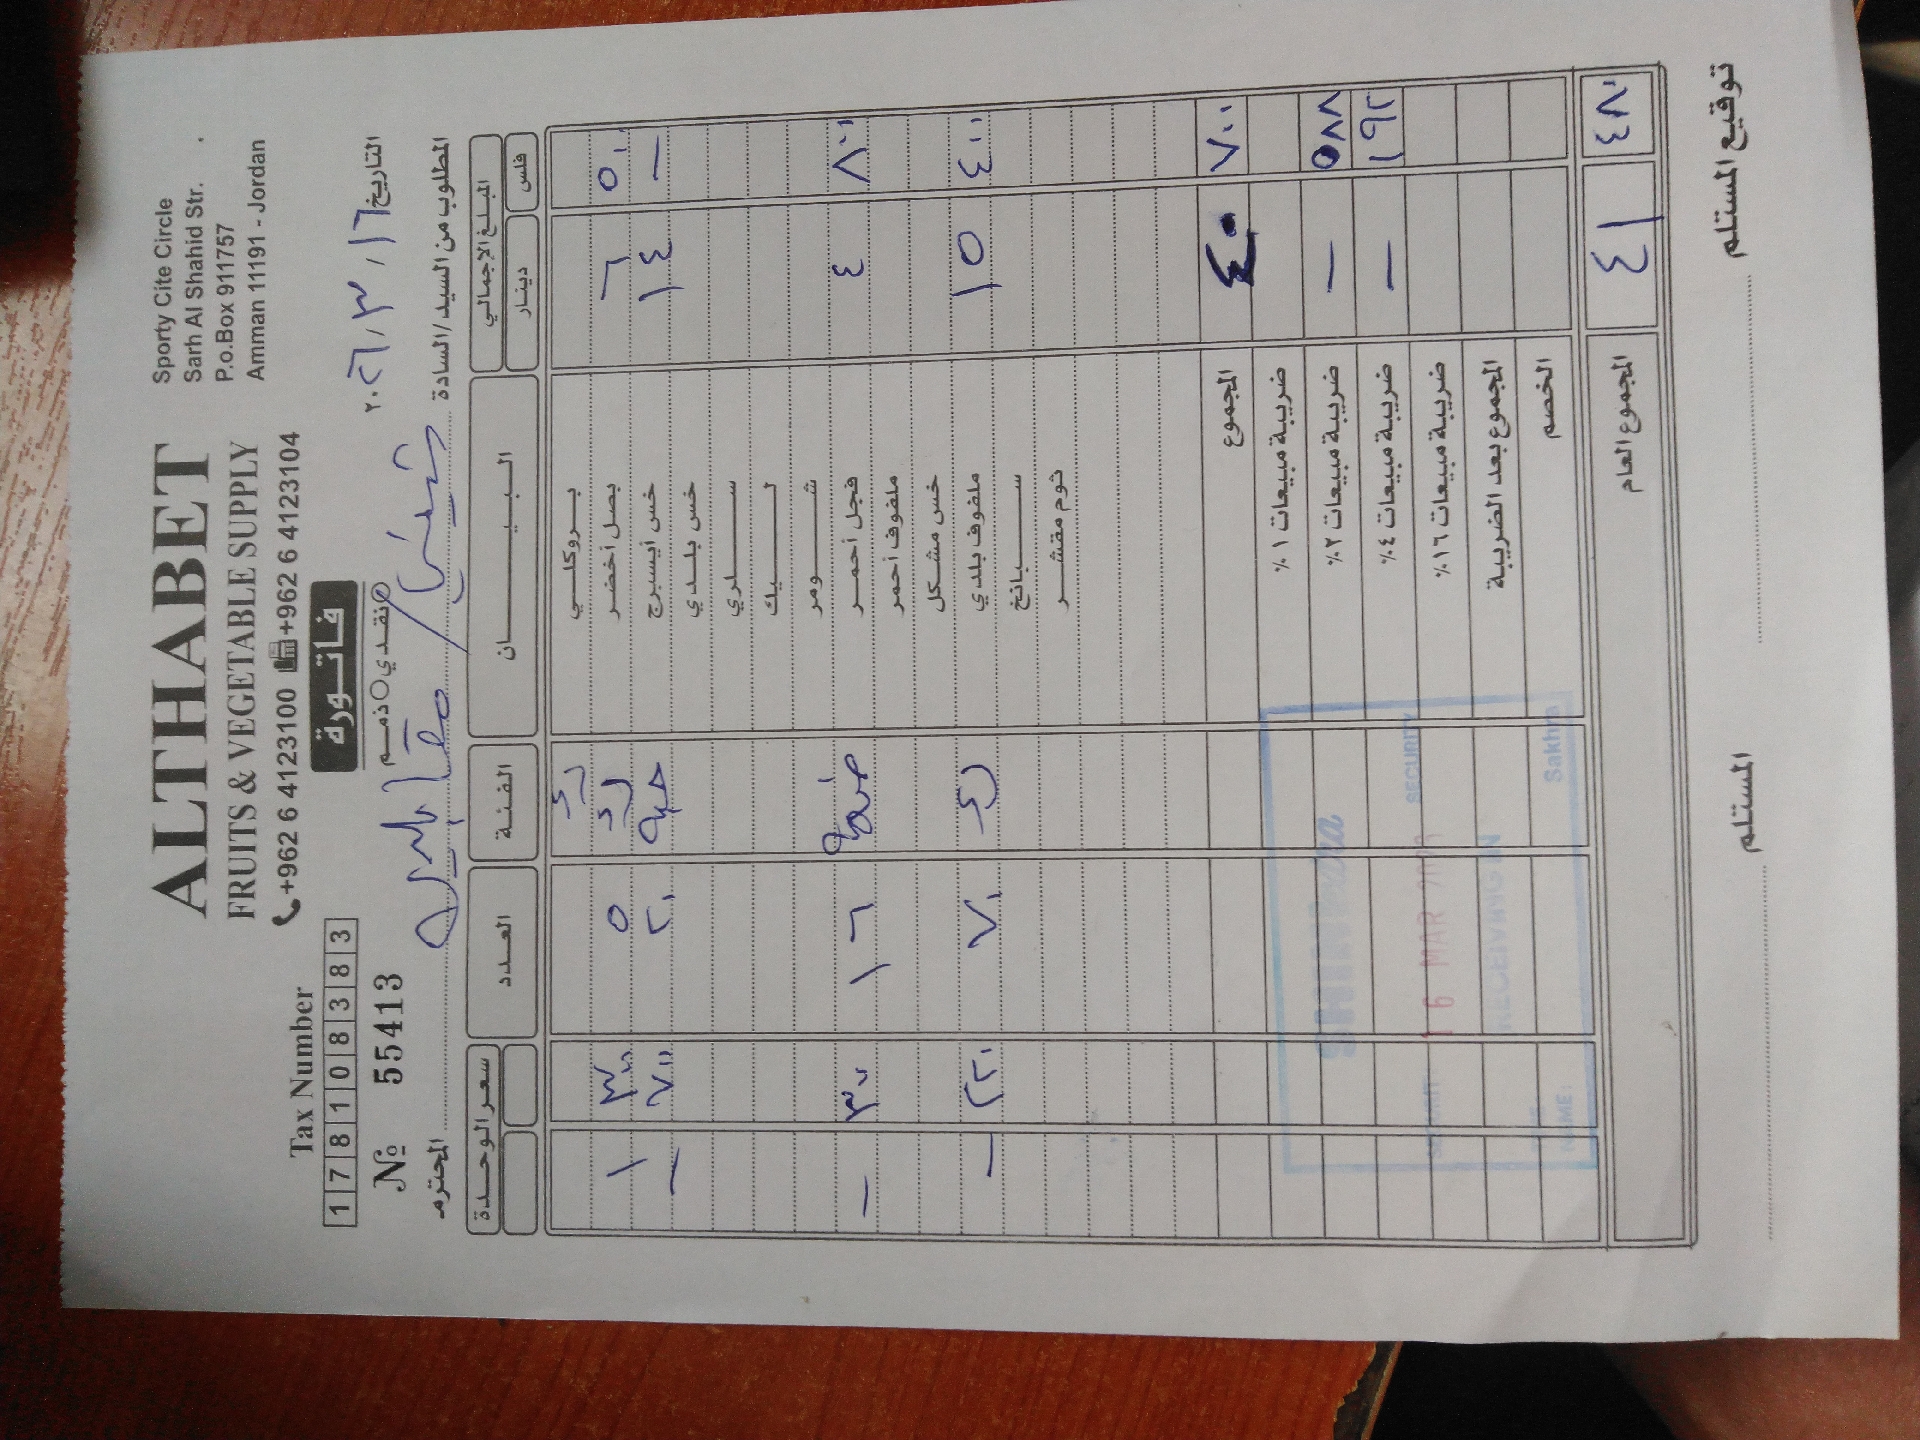 ALTHABET
FRUITS & VEGETABLE SUPPLY
+962 6 4123100 +962 6 4123104
Sporty Cite Circle
Sarh Al Shahid Str.
P.o.Box 911757
Amman 11191 - Jordan
Tax Number
1 7 8 1 0 8 3 8 3
№ 55413
فاتورة
نقدي ذمم
التاريخ ١٦/٣/٢٠٢٦
المطلوب من السيد/السادة المحترم
المبلغ الإجمالي البيان الفئة العدد سعر الوحدة
فلس دينار
بروكلي
٥٠٠ ٦ بصل أخضر ٥ ٣٠٠ ١
— ١٤ خس أيسبرج حبة ٢٠ ٧٠٠ —
خس بلدي
سلري
ليك
شومر
٨٠٠ ٤ فجل أحمر ١٦ ٣٠٠ —
ملفوف أحمر
خس مشكل
٤٠٠ ١٥ ملفوف بلدي ٧٠ ٢٢٠ —
سبانخ
ثوم مقشر
٧٠٠ ٤٠ المجموع
ضريبة مبيعات ١٪
٥٨٨ — ضريبة مبيعات ٢٪
١٩٢ — ضريبة مبيعات ٤٪
ضريبة مبيعات ١٦٪
المجموع بعد الضريبة
الخصم
٤٨٠ ٤١ المجموع العام
SECURITY
16 MAR
RECEIVING IN
NAME:
Sakhra
توقيع المستلم
المستلم